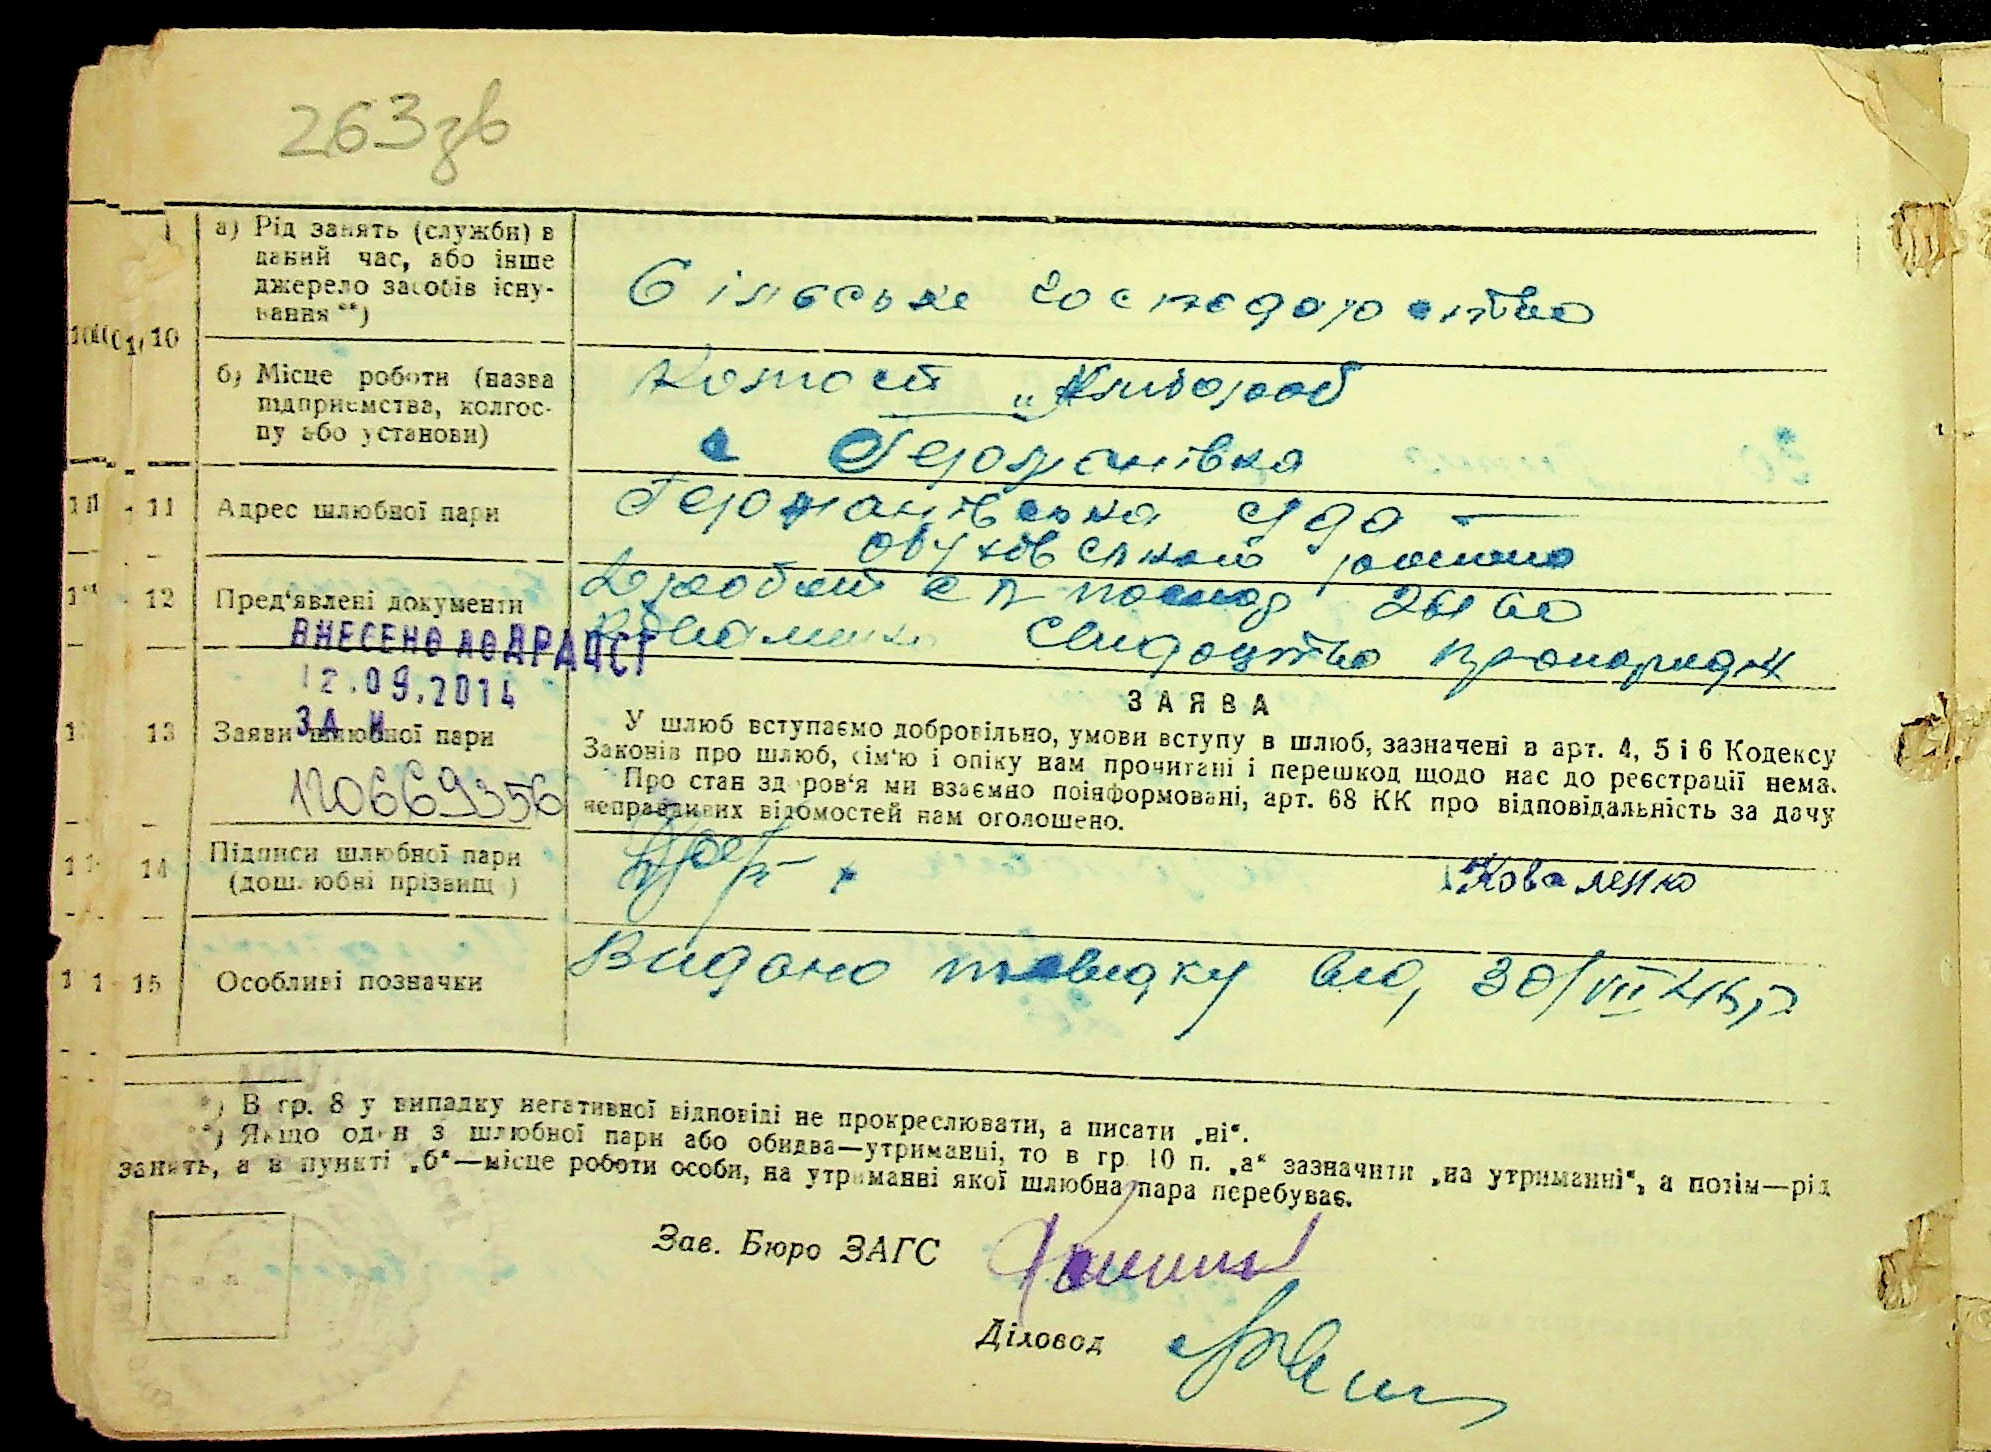 263зв
а) Рід занять (служби) в
даний час, або інше
джерело засобів існу-
вання **)
Сільське господарство
10
б) Місце роботи (назва
підприємства, колгос-
пу або установи)
Колгосп „Хлібороб
с Германівка
11
Адрес шлюбної пари
Германівська с/рада
Обухівський району
12
Пред'явлені документи
26160
Коваленко Свидоцтво
ВНЕСЕНО ДО ДРАЦСГ
12.09.2014
ЗА №
120669356
13
Заяви шлюбної пари
ЗАЯВА
У шлюб вступаємо добровільно, умови вступу в шлюб, зазначені в арт. 4, 5 і 6 Кодексу
Законів про шлюб, сім'ю і опіку нам прочитані і перешкод щодо нас до реєстрації нема.
Про стан здоров'я ми взаємно поінформовані, арт. 68 КК про відповідальність за дачу
неправдивих відомостей нам оголошено.
14
Підписи шлюбної пари
(дошлюбні прізвищ )
Коваленко
15
Особливі позначки
Видано довідку від 30/VII 46 р
*) В гр. 8 у випадку негативної відповіді не прокреслювати, а писати „ні“.
**) Якщо один з шлюбної пари або обидва—утриманці, то в гр. 10 п. „а“ зазначити „на утриманні“, а потім—рід
занять, а в пункті „б“—місце роботи особи, на утриманні якої шлюбна пара перебуває.
Зав. Бюро ЗАГС
Діловод